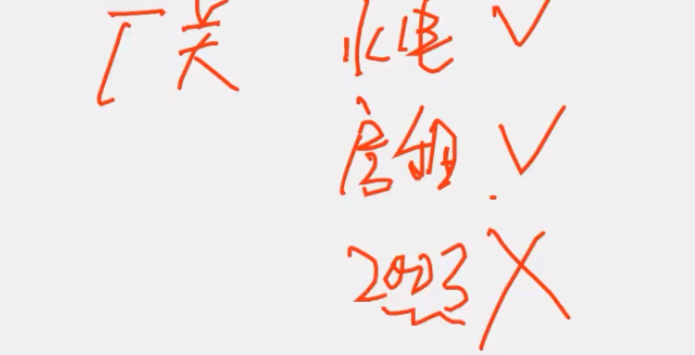 厂关 水电 ✓
房租 ✓
2003 ✗